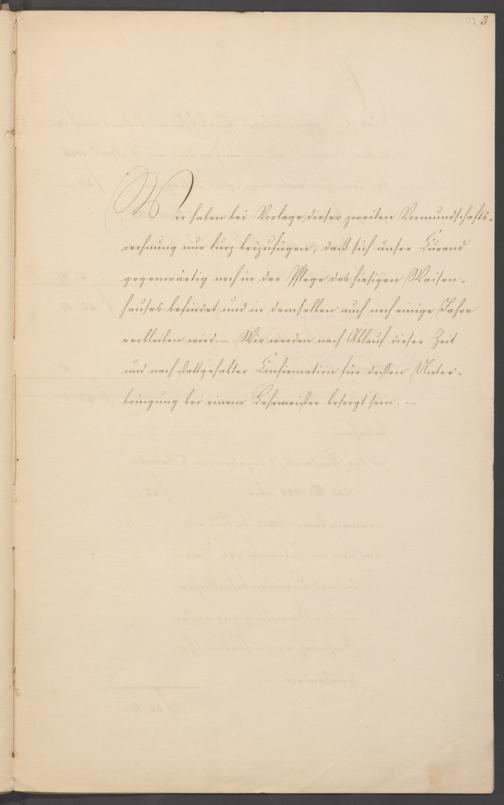 3
Wir haben bei Vorlage dieser zweiten Vormundschafts-
rechnung nur kurz beizufügen, daß sich unser Curand
gegenwärtig noch in der Pflege des hiesigen Waisen-
hauses befindet und in demselben auch noch einige Jahre
verbleiben wird. Wir werden nach Ablauf dieser Zeit
und nach stattgehabter Confirmation für dessen Unter-
bringung bei einem Lehrmeister besorgt sein. —